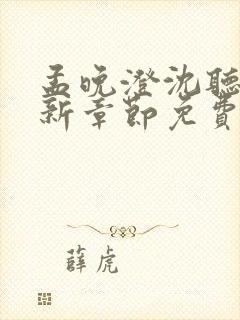 孟晚澄沈聽
新章節免費
薛虎